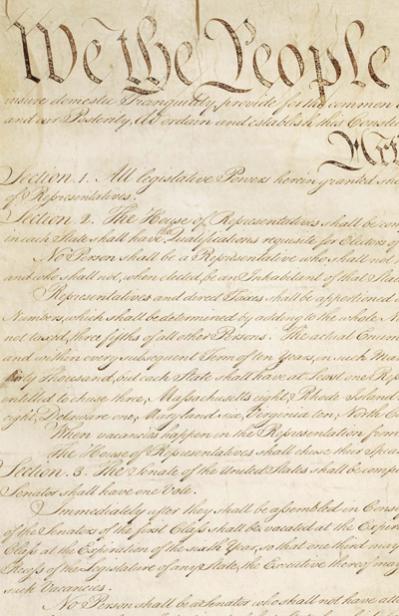 We the People
insure domestic Tranquility, provide for the common
and our Posterity, do ordain and establish this Consti
Art
Section. 1. All legislative Powers herein granted sha
of Representatives.
Section. 2. The House of Representatives shall be com
in each State shall have the Qualifications requisite for Electors of
No Person shall be a Representative who shall not
and who shall not, when elected, be an Inhabitant of that State
Representatives and direct Taxes shall be apportioned
Numbers, which shall be determined by adding to the whole N
not taxed, three fifths of all other Persons. The actual Enum
and within every subsequent Term of ten Years, in such Man
thirty Thousand, but each State shall have at Least one Rep
entitled to chuse three, Massachusetts eight, Rhode Island
eight, Delaware one, Maryland six, Virginia ten, North C
When vacancies happen in the Representation from
The House of Representatives shall chuse their Spea
Section. 3. The Senate of the United States shall be comp
Senator shall have one Vote.
Immediately after they shall be assembled in Conse
of the Senators of the first Class shall be vacated at the Expir
Class at the Expiration of the sixth Year, so that one third may
Recess of the Legislature of any State, the Executive thereof may
such Vacancies.
No Person shall be a Senator who shall not have att